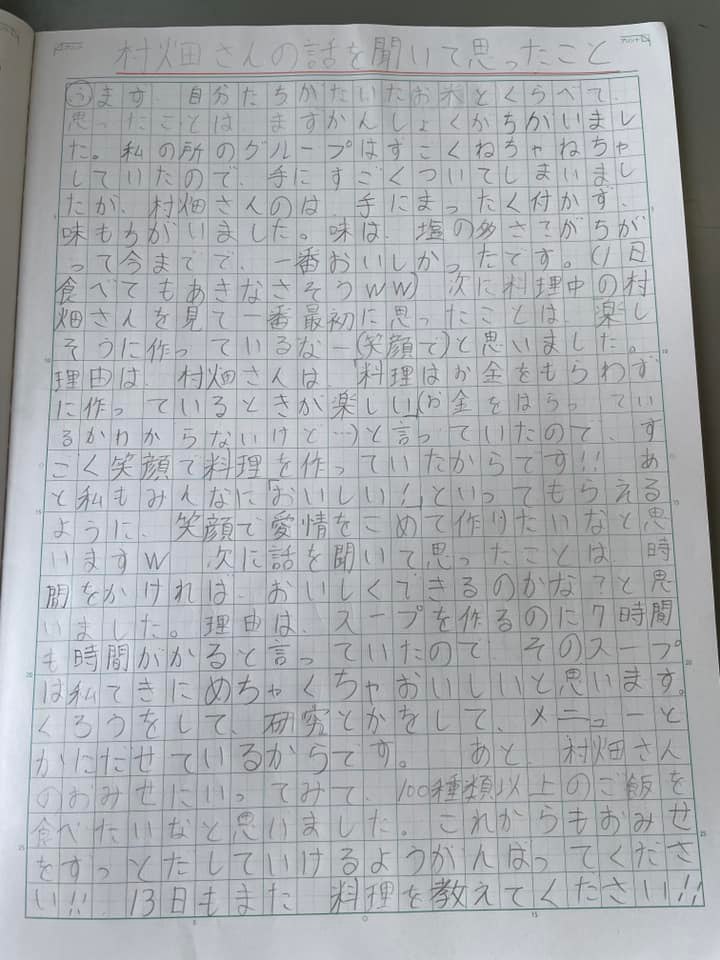 村畑さんの話を聞いて思ったこと
うます、自分たちがたいたお米とくらべて、
思ったことは、ますかんしょくがちがいまし
た。私の所のグループはすごくねちゃねちゃ
していたので、手にすごくついてしまいまし
たが、村畑さんのは、手にまったく付かず、
味もちがいました。味は、塩の多さ?がちが
って今までで、一番おいしかったです。(1日
食べてもあきなさそうww)次に料理中の村
畑さんを見て一番最初に思ったことは、楽し
そうに作っているなー(笑顔で)と思いました。
理由は、村畑さんは、「料理はお金をもらわず
に作っているときが楽しい」(お金をはらってい
るかわからないけど…)と言っていたので、す
ごく笑顔で料理を作っていたからです!!あ
と私もみんなに「おいしい!」といってもらえる
ように、笑顔で愛情をこめて作りたいなと思
いますw 次に話を聞いて思ったことは、時
間をかければ、おいしくできるのかな?と思
いました。理由は、スープを作るのに7時間
も時間がかると言っていたので、そのスープ
は私てきにめちゃくちゃおいしいと思います。
くろうをして、研究とかをして、メニューと
かにだせているからです。 あと、村畑さん
のおみせにいってみて、100種類以上のご飯を
食べたいなと思いました。これからもおみせ
をずっとだしていけるようがんばってくださ
い!!、13日もまた 料理を教えてください!!